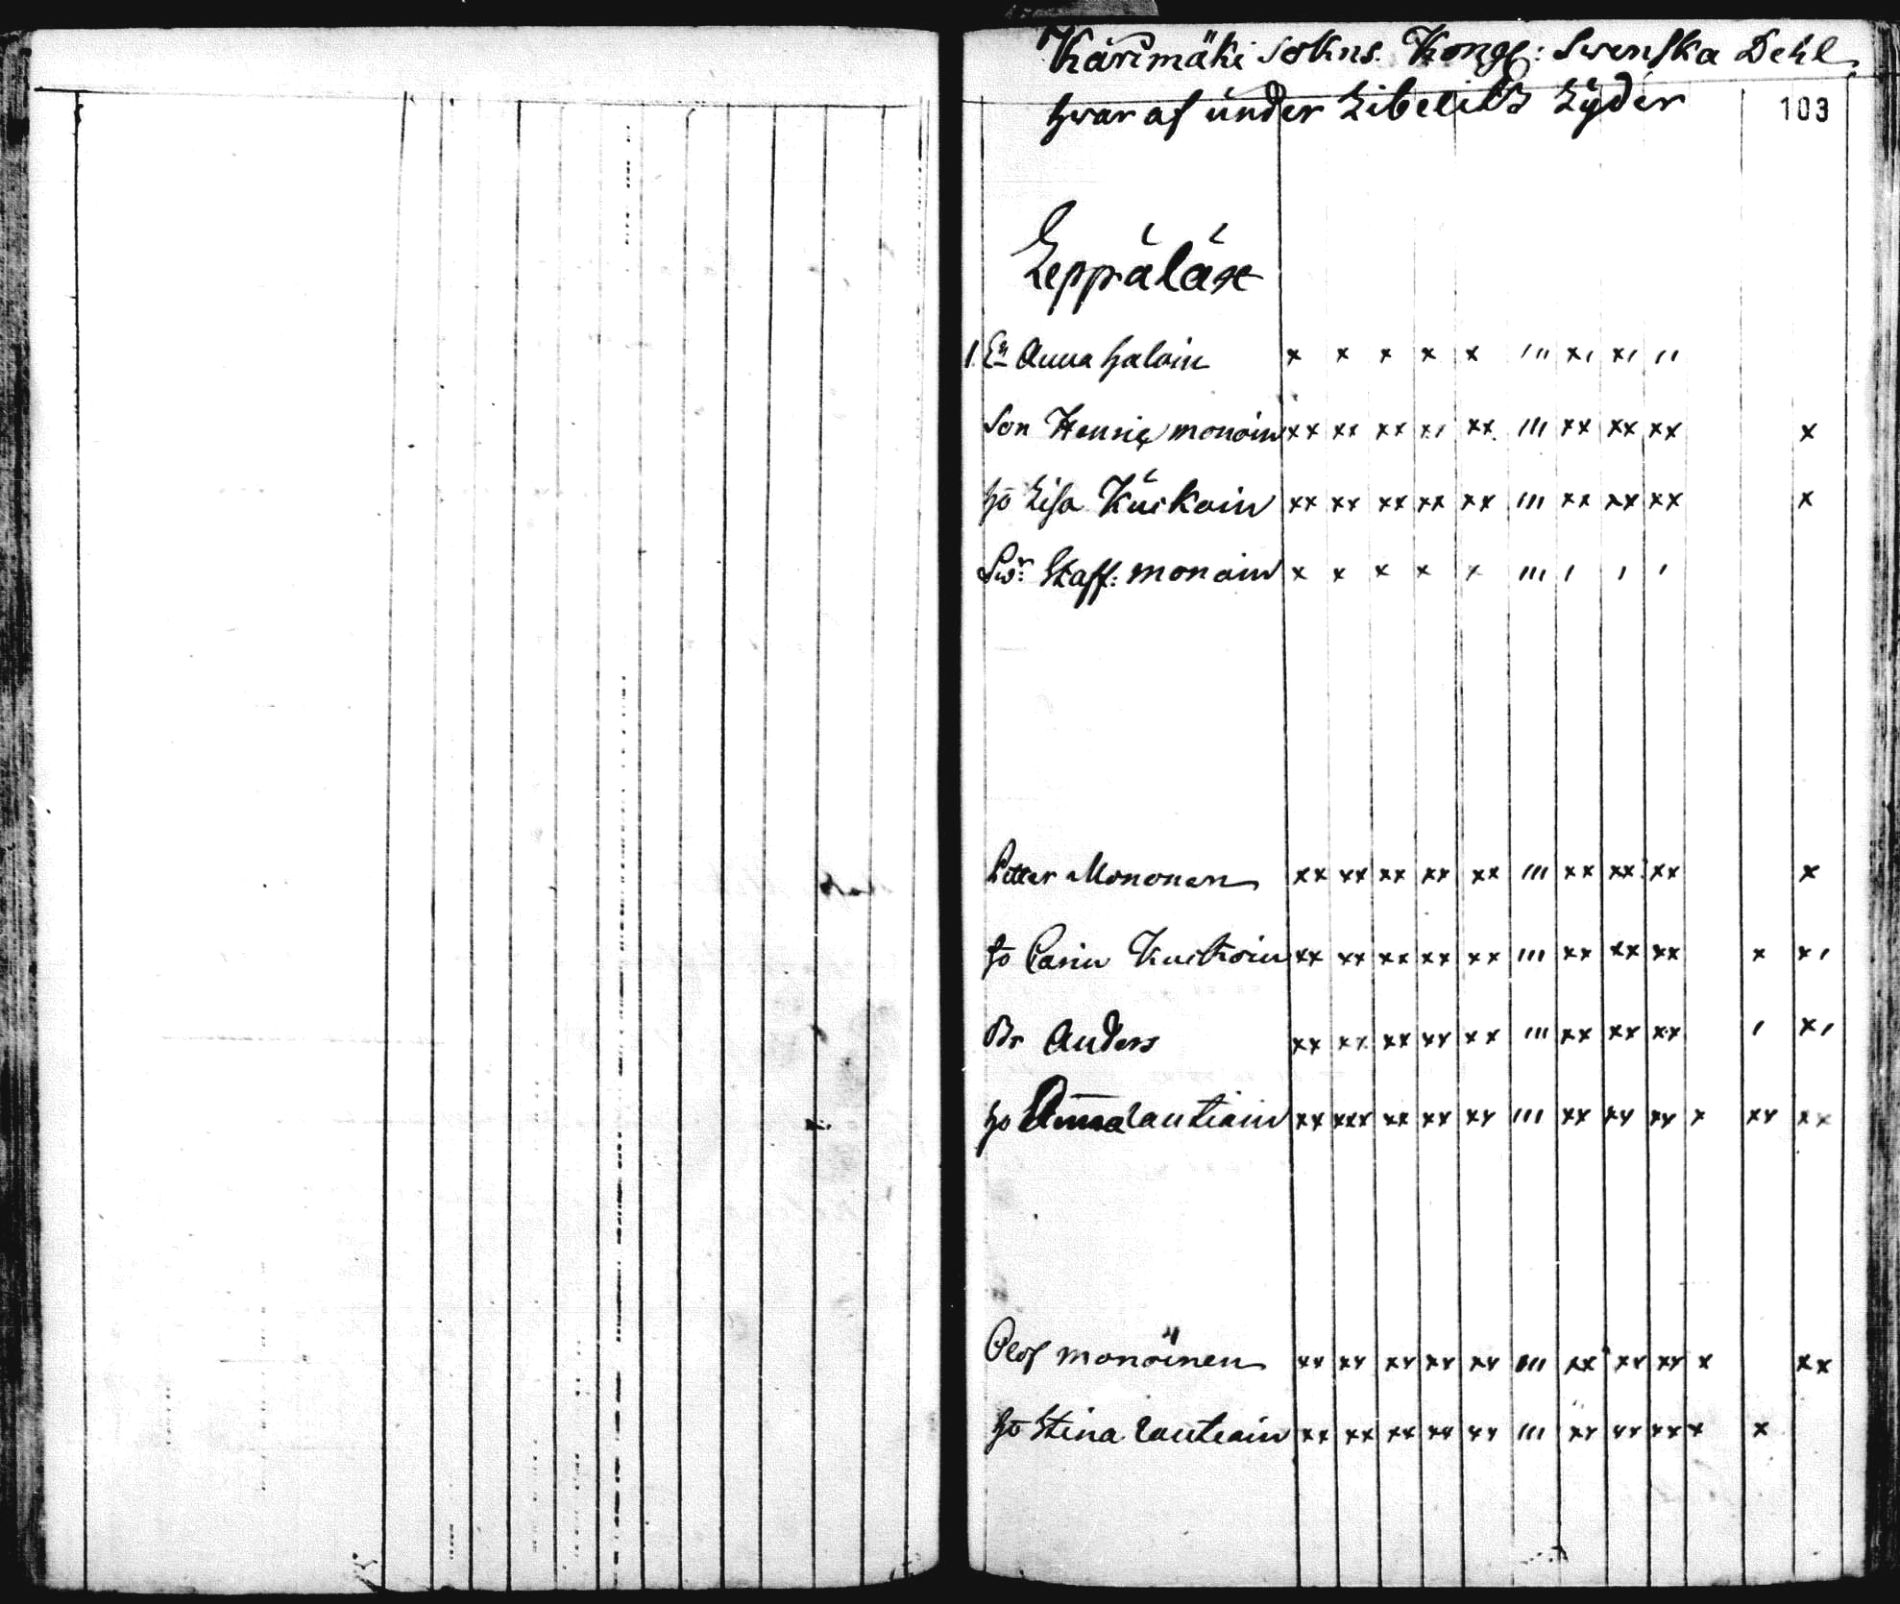 Kärimäki sokns. Kongl: Swenska Dehl,
hvar af under Libelits Lyder
103
Leppäläx
1. En Anna Haloin x x x x x ııı xı xı ıı
Son Henric monoin xx xx xx xı xx ııı xx xx xx x
ho Lisa Kuckoin xx xx xx xx xx ııı xx xx xx x
Swr: Staff: monoin x x x x x ııı ı ı ı
Petter Mononen xx xx xx xx xx ııı xx xx xx x
ho Carin Kuckoin xx xx xx xx xx ııı xx xx xx x xı
Br Anders xx xx xx xx xx ııı xx xx xx ı xı
ho Anna lautiain xx xxx xx xx xx ııı xx xx xx x xx xx
Olof monöinen xx xx xx xx xx ııı xx xx xx x xx
ho Stina lautiain xx xx xx xx xx ııı xx xx xx x x